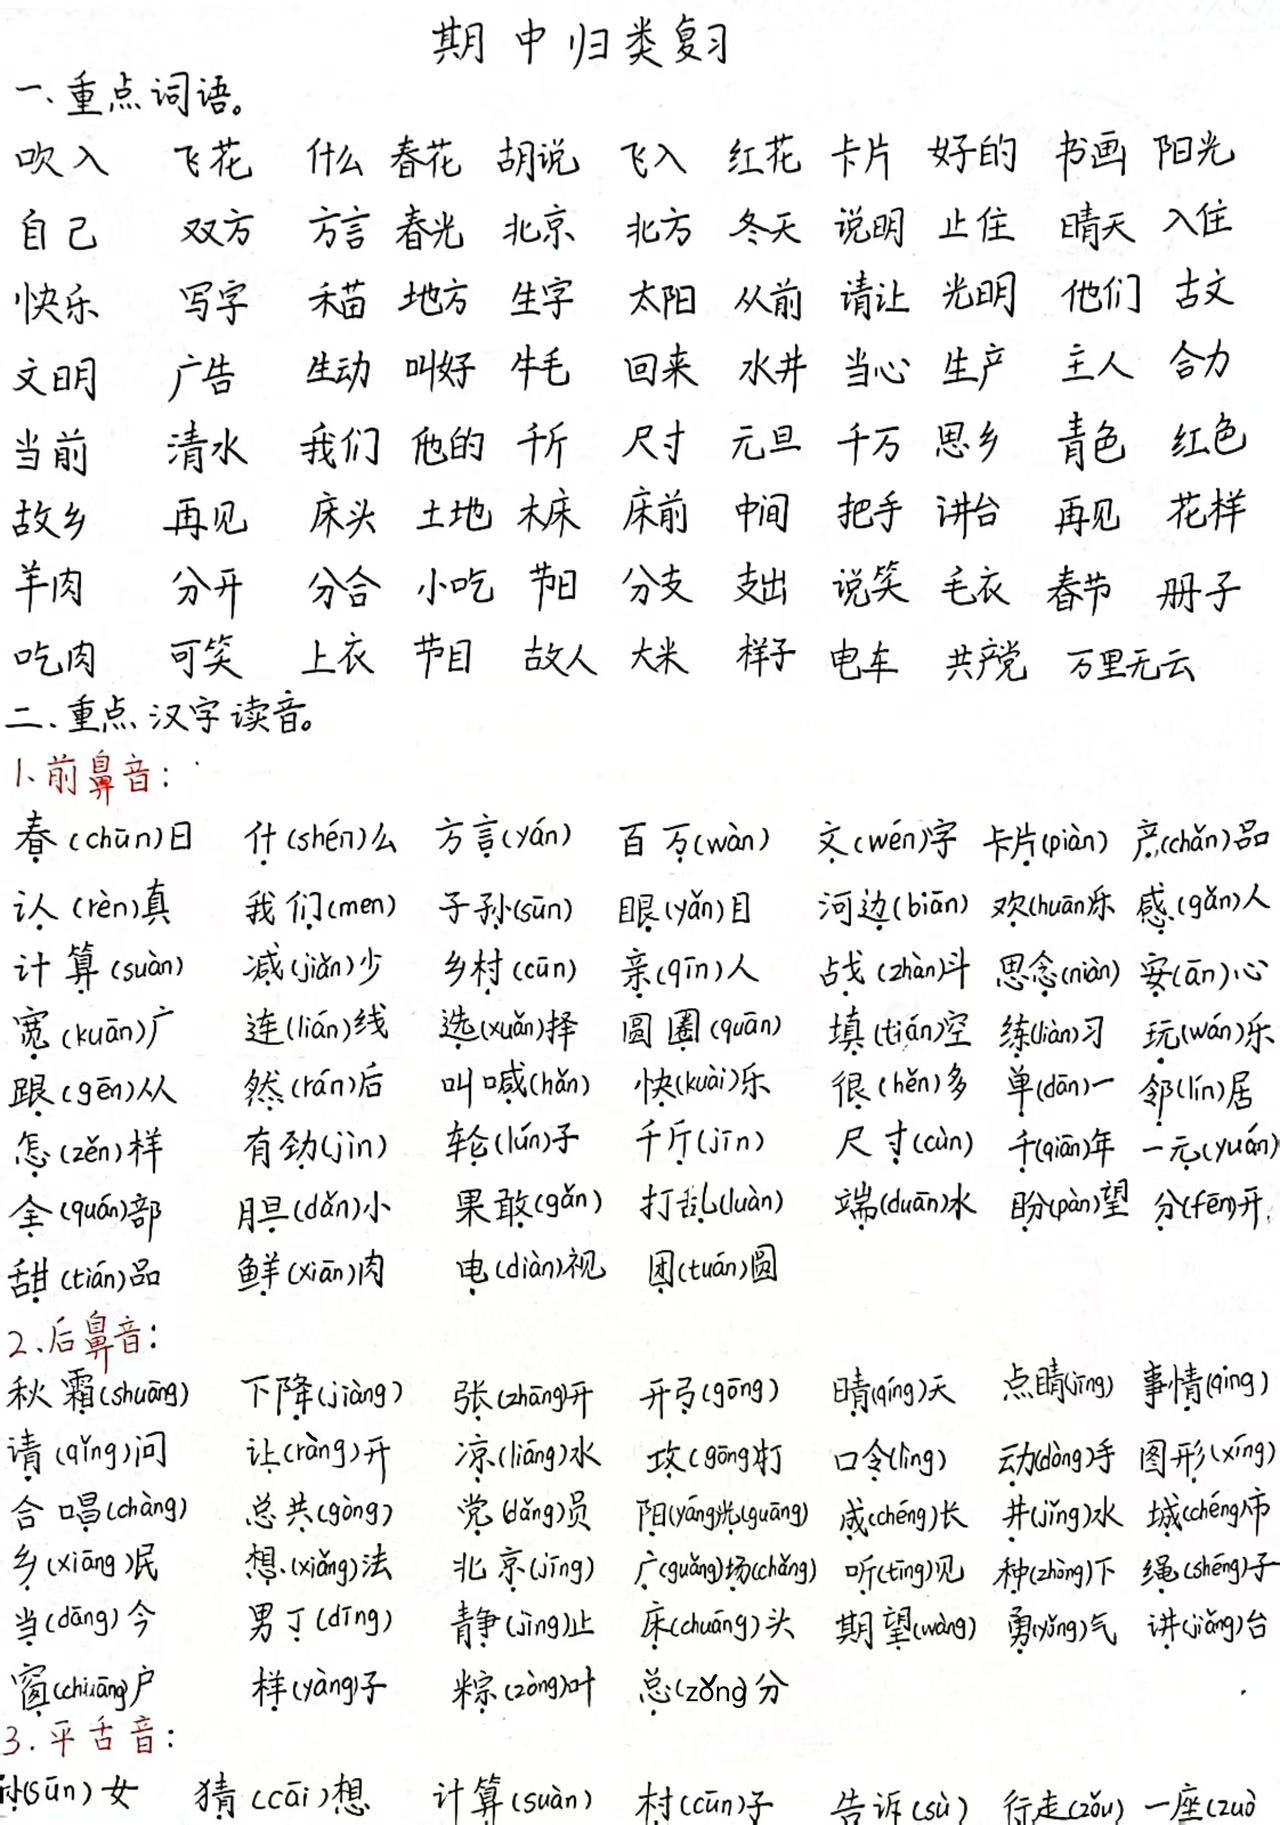 期中归类复习
一、重点词语。
吹入 飞花 什么 春花 胡说 飞入 红花 卡片 好的 书画 阳光
自己 双方 方言 春光 北京 北方 冬天 说明 止住 晴天 入住
快乐 写字 禾苗 地方 生字 太阳 从前 请让 光明 他们 古文
文明 广告 生动 叫好 牛毛 回来 水井 当心 生产 主人 合力
当前 清水 我们 他的 千斤 尺寸 元旦 千万 思乡 青色 红色
故乡 再见 床头 土地 木床 床前 中间 把手 讲台 再见 花样
羊肉 分开 分合 小吃 节日 分支 支出 说笑 毛衣 春节 册子
吃肉 可笑 上衣 节目 故人 大米 样子 电车 共产党 万里无云
二、重点汉字读音。
1、前鼻音：
春(chūn)日 什(shén)么 方言(yán) 百万(wàn) 文(wén)字 卡片(piàn) 产(chǎn)品
认(rèn)真 我们(men) 子孙(sūn) 眼(yǎn)目 河边(biān) 欢(huān)乐 感(gǎn)人
计算(suàn) 减(jiǎn)少 乡村(cūn) 亲(qīn)人 战(zhàn)斗 思念(niàn) 安(ān)心
宽(kuān)广 连(lián)线 选(xuǎn)择 圆圈(quān) 填(tián)空 练(liàn)习 玩(wán)乐
跟(gēn)从 然(rán)后 叫喊(hǎn) 快(kuài)乐 很(hěn)多 单(dān)一 邻(lín)居
怎(zěn)样 有劲(jìn) 轮(lún)子 千斤(jīn) 尺寸(cùn) 千(qiān)年 一元(yuán)
全(quán)部 胆(dǎn)小 果敢(gǎn) 打乱(luàn) 端(duān)水 盼(pàn)望 分(fēn)开
甜(tián)品 鲜(xiān)肉 电(diàn)视 团(tuán)圆
2、后鼻音：
秋霜(shuāng) 下降(jiàng) 张(zhāng)开 开弓(gōng) 晴(qíng)天 点睛(jīng) 事情(qing)
请(qǐng)问 让(ràng)开 凉(liāng)水 攻(gōng)打 口令(lìng) 动(dòng)手 图形(xíng)
合唱(chàng) 总共(gòng) 党(dǎng)员 阳(yáng)光(guāng) 成(chéng)长 井(jǐng)水 城(chéng)市
乡(xiāng)民 想(xiǎng)法 北京(jīng) 广(guǎng)场(chǎng) 听(tīng)见 种(zhòng)下 绳(shéng)子
当(dāng)今 男丁(dīng) 静(jìng)止 床(chuáng)头 期望(wàng) 勇(yǒng)气 讲(jiǎng)台
窗(chuāng)户 样(yàng)子 粽(zòng)叶 总(zǒng)分
3.平舌音：
孙(sūn)女 猜(cāi)想 计算(suàn) 村(cūn)子 告诉(sù) 行走(zǒu) 一座(zuò